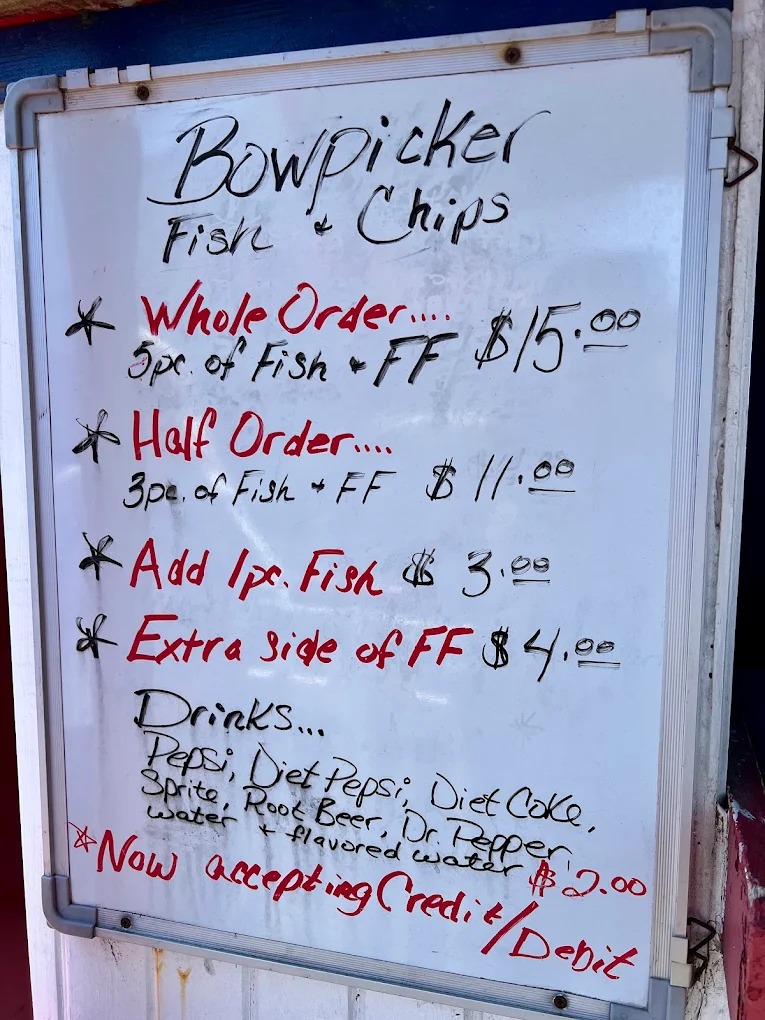 Bowpicker
Fish & Chips
* Whole Order.... $15.00
5pc. of Fish + FF
* Half Order....
3pc. of Fish + FF $11.00
* Add 1pc. Fish $3.00
* Extra side of FF $4.00
Drinks...
Pepsi, Diet Pepsi, Diet Coke,
Sprite, Root Beer, Dr. Pepper,
water + flavored water $2.00
*Now accepting Credit/Debit